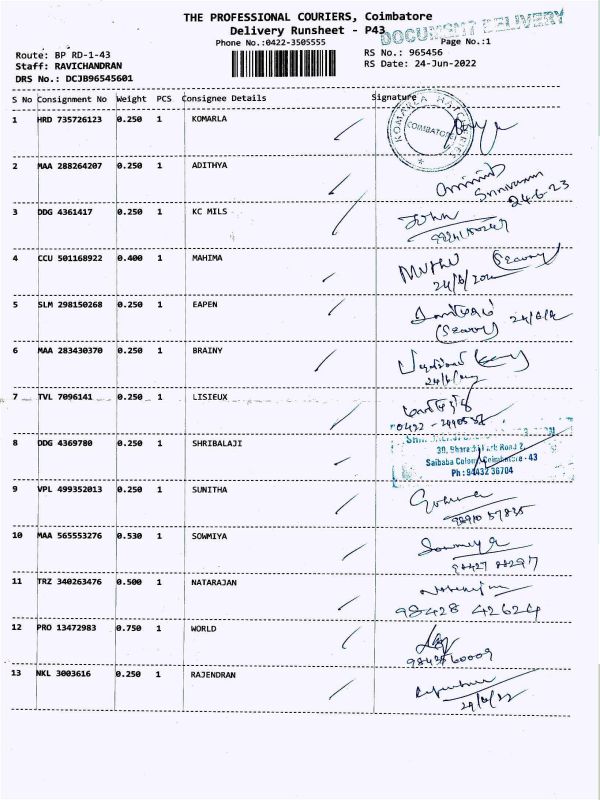 THE PROFESSIONAL COURIERS, Coimbatore
Delivery Runsheet - P43
DOCUMENT DELIVERY
Phone No.:0422-3505555
Page No.:1
Route: BP RD-1-43
RS No.: 965456
Staff: RAVICHANDRAN
RS Date: 24-Jun-2022
DRS No.: DCJB96545601
S No Consignment No Weight PCS Consignee Details Signature
1 HRD 735726123 0.250 1 KOMARLA
KOMARLA HATCHERIES
COIMBATORE
2 MAA 288264207 0.250 1 ADITHYA
Srinivasan
24-6-23
3 DDG 4361417 0.250 1 KC MILS
John
4 CCU 501168922 0.400 1 MAHIMA
Muthu (Security)
5 SLM 298150268 0.250 1 EAPEN
6 MAA 283430370 0.250 1 BRAINY
7 TVL 7096141 0.250 1 LISIEUX
8 DDG 4369780 0.250 1 SHRIBALAJI
Saibaba Colony, Coimbatore - 43
Ph : 94432 36704
9 VPL 499352013 0.250 1 SUNITHA
10 MAA 565553276 0.530 1 SOWMIYA
Sowmiya
11 TRZ 340263476 0.500 1 NATARAJAN
Natarajan
98428 42624
12 PRO 13472983 0.750 1 WORLD
9843560009
13 NKL 3003616 0.250 1 RAJENDRAN
24/6/22